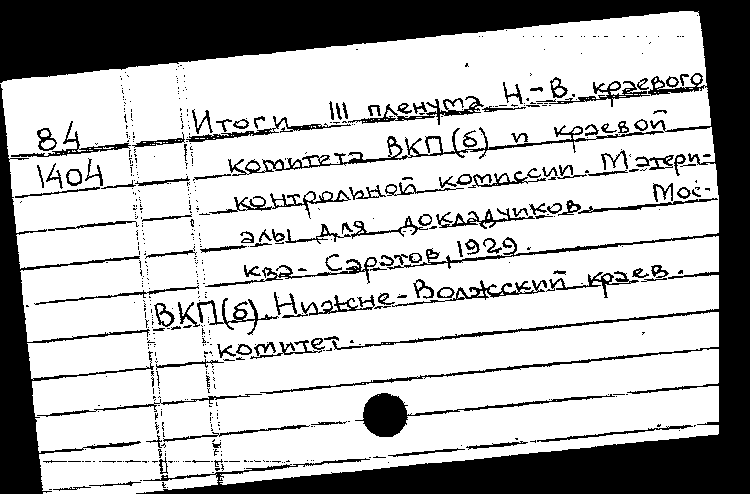 84
1404
Итоги III пленума Н.-В. краевого
комитета ВКП(б) и краевой
контрольной комиссии. Матери-
алы для докладчиков. Мос-
ква - Саратов, 1929.
ВКП(б). Нижне-Волжский краев.
комитет.